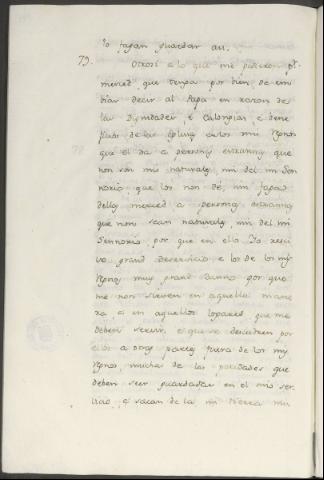 lo fagan guardar asi.
79. Otrosi a lo que me pidieron pr.
merced que tenga por bien de em
biar decir al Papa en razon de
las Dignidades, e Calongias, e bene
ficios de las eglias en los mis regnos
que el da a personas estrannas que
non son mis naturales, nin del mi Sen
norio, que los non dé, nin fagas
dello merced a personas estrannas
que non sean naturales, nin del mi
Sennorio, por que en ello Yo resci
vo grand deservicio, e los de los mis
Regnos muy grant danno por que
me non sirven en aquella mane
ra, e en aquellos logares que me
deben servir, e que se descubren por
ellos a otras partes fuera de los mis
Regnos, muchas de las poridades que
deben seer guardadas en el mio ser
vicio, e sacan de la mi tierra mu